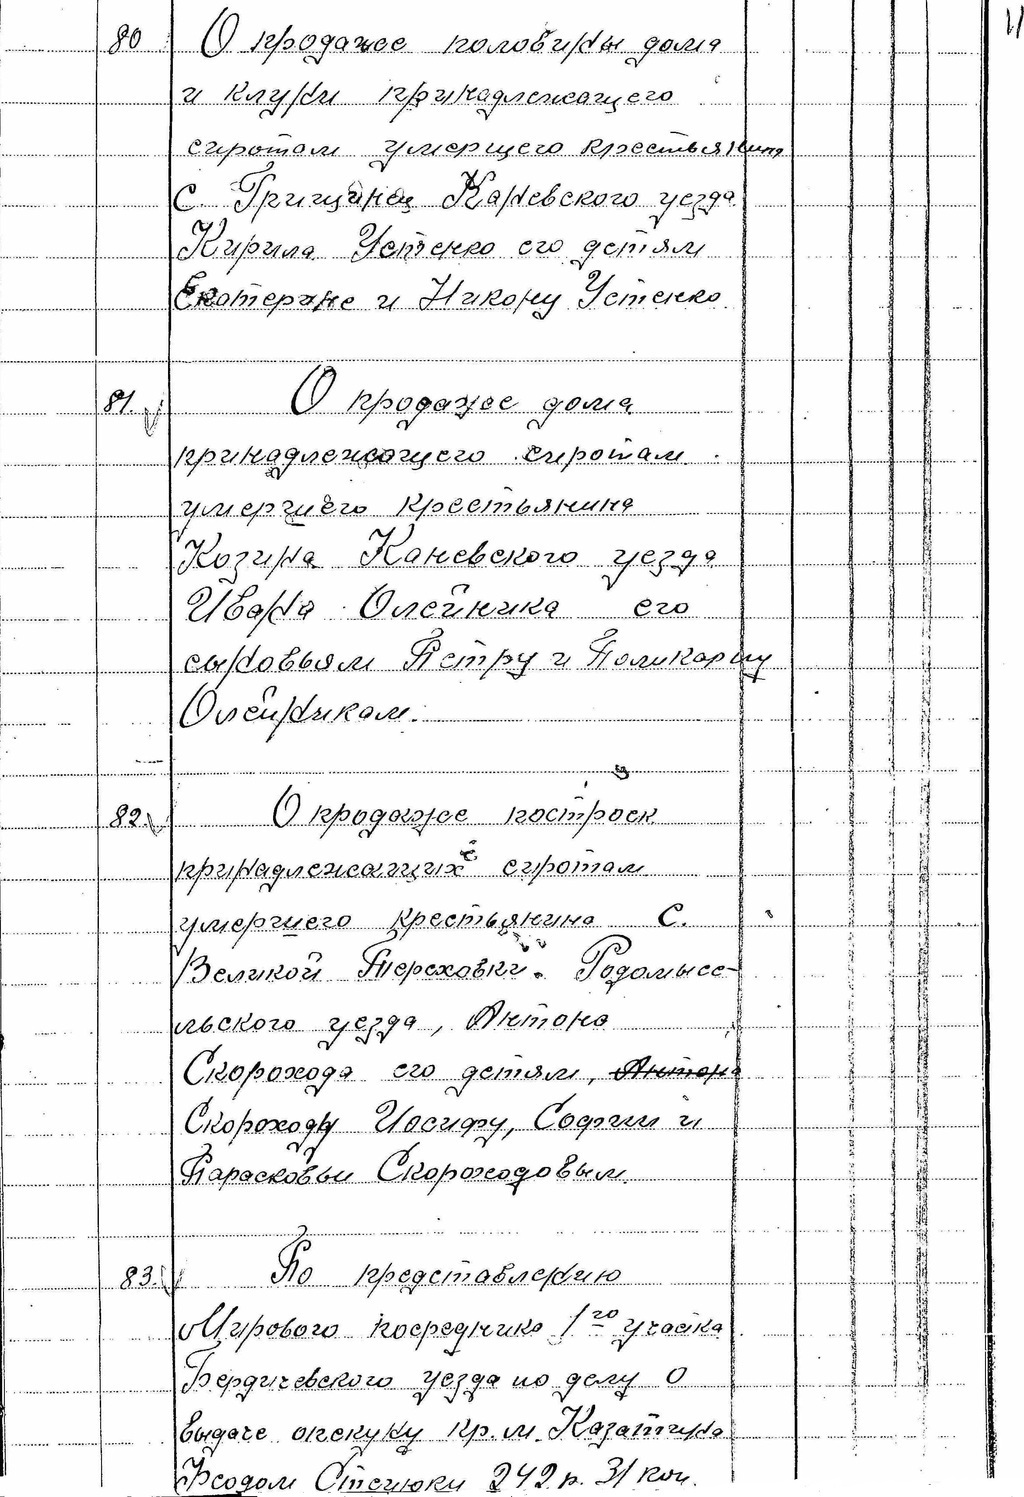 11
80 О продаже половины дома
и клуни принадлежащего
сиротам умершего крестьянина
с. Грищинец Каневского уезда
Кирила Устенко его детям
Екатерине и Никону Устенко.
81. О продаже дома
принадлежащего сиротам
умершего крестьянина
Козина Каневского уезда
Ивана Олейника его
сыновьям Петру и Поликарпу
Олейникам.
82. О продаже построек
принадлежащих сиротам
умершего крестьянина С.
Великой Тереховки. Родомысе-
льского уезда, Антона
Скорохода его детям, Антона
Скороходу Иосифу, Софии и
Парасковьи Скороходовым.
83. По представлению
Мирового посредника 1го участка
Бердичевского уезда по делу О
выдаче опекуну кр. м. Казатина
Феодом 242 р. 31 коп.